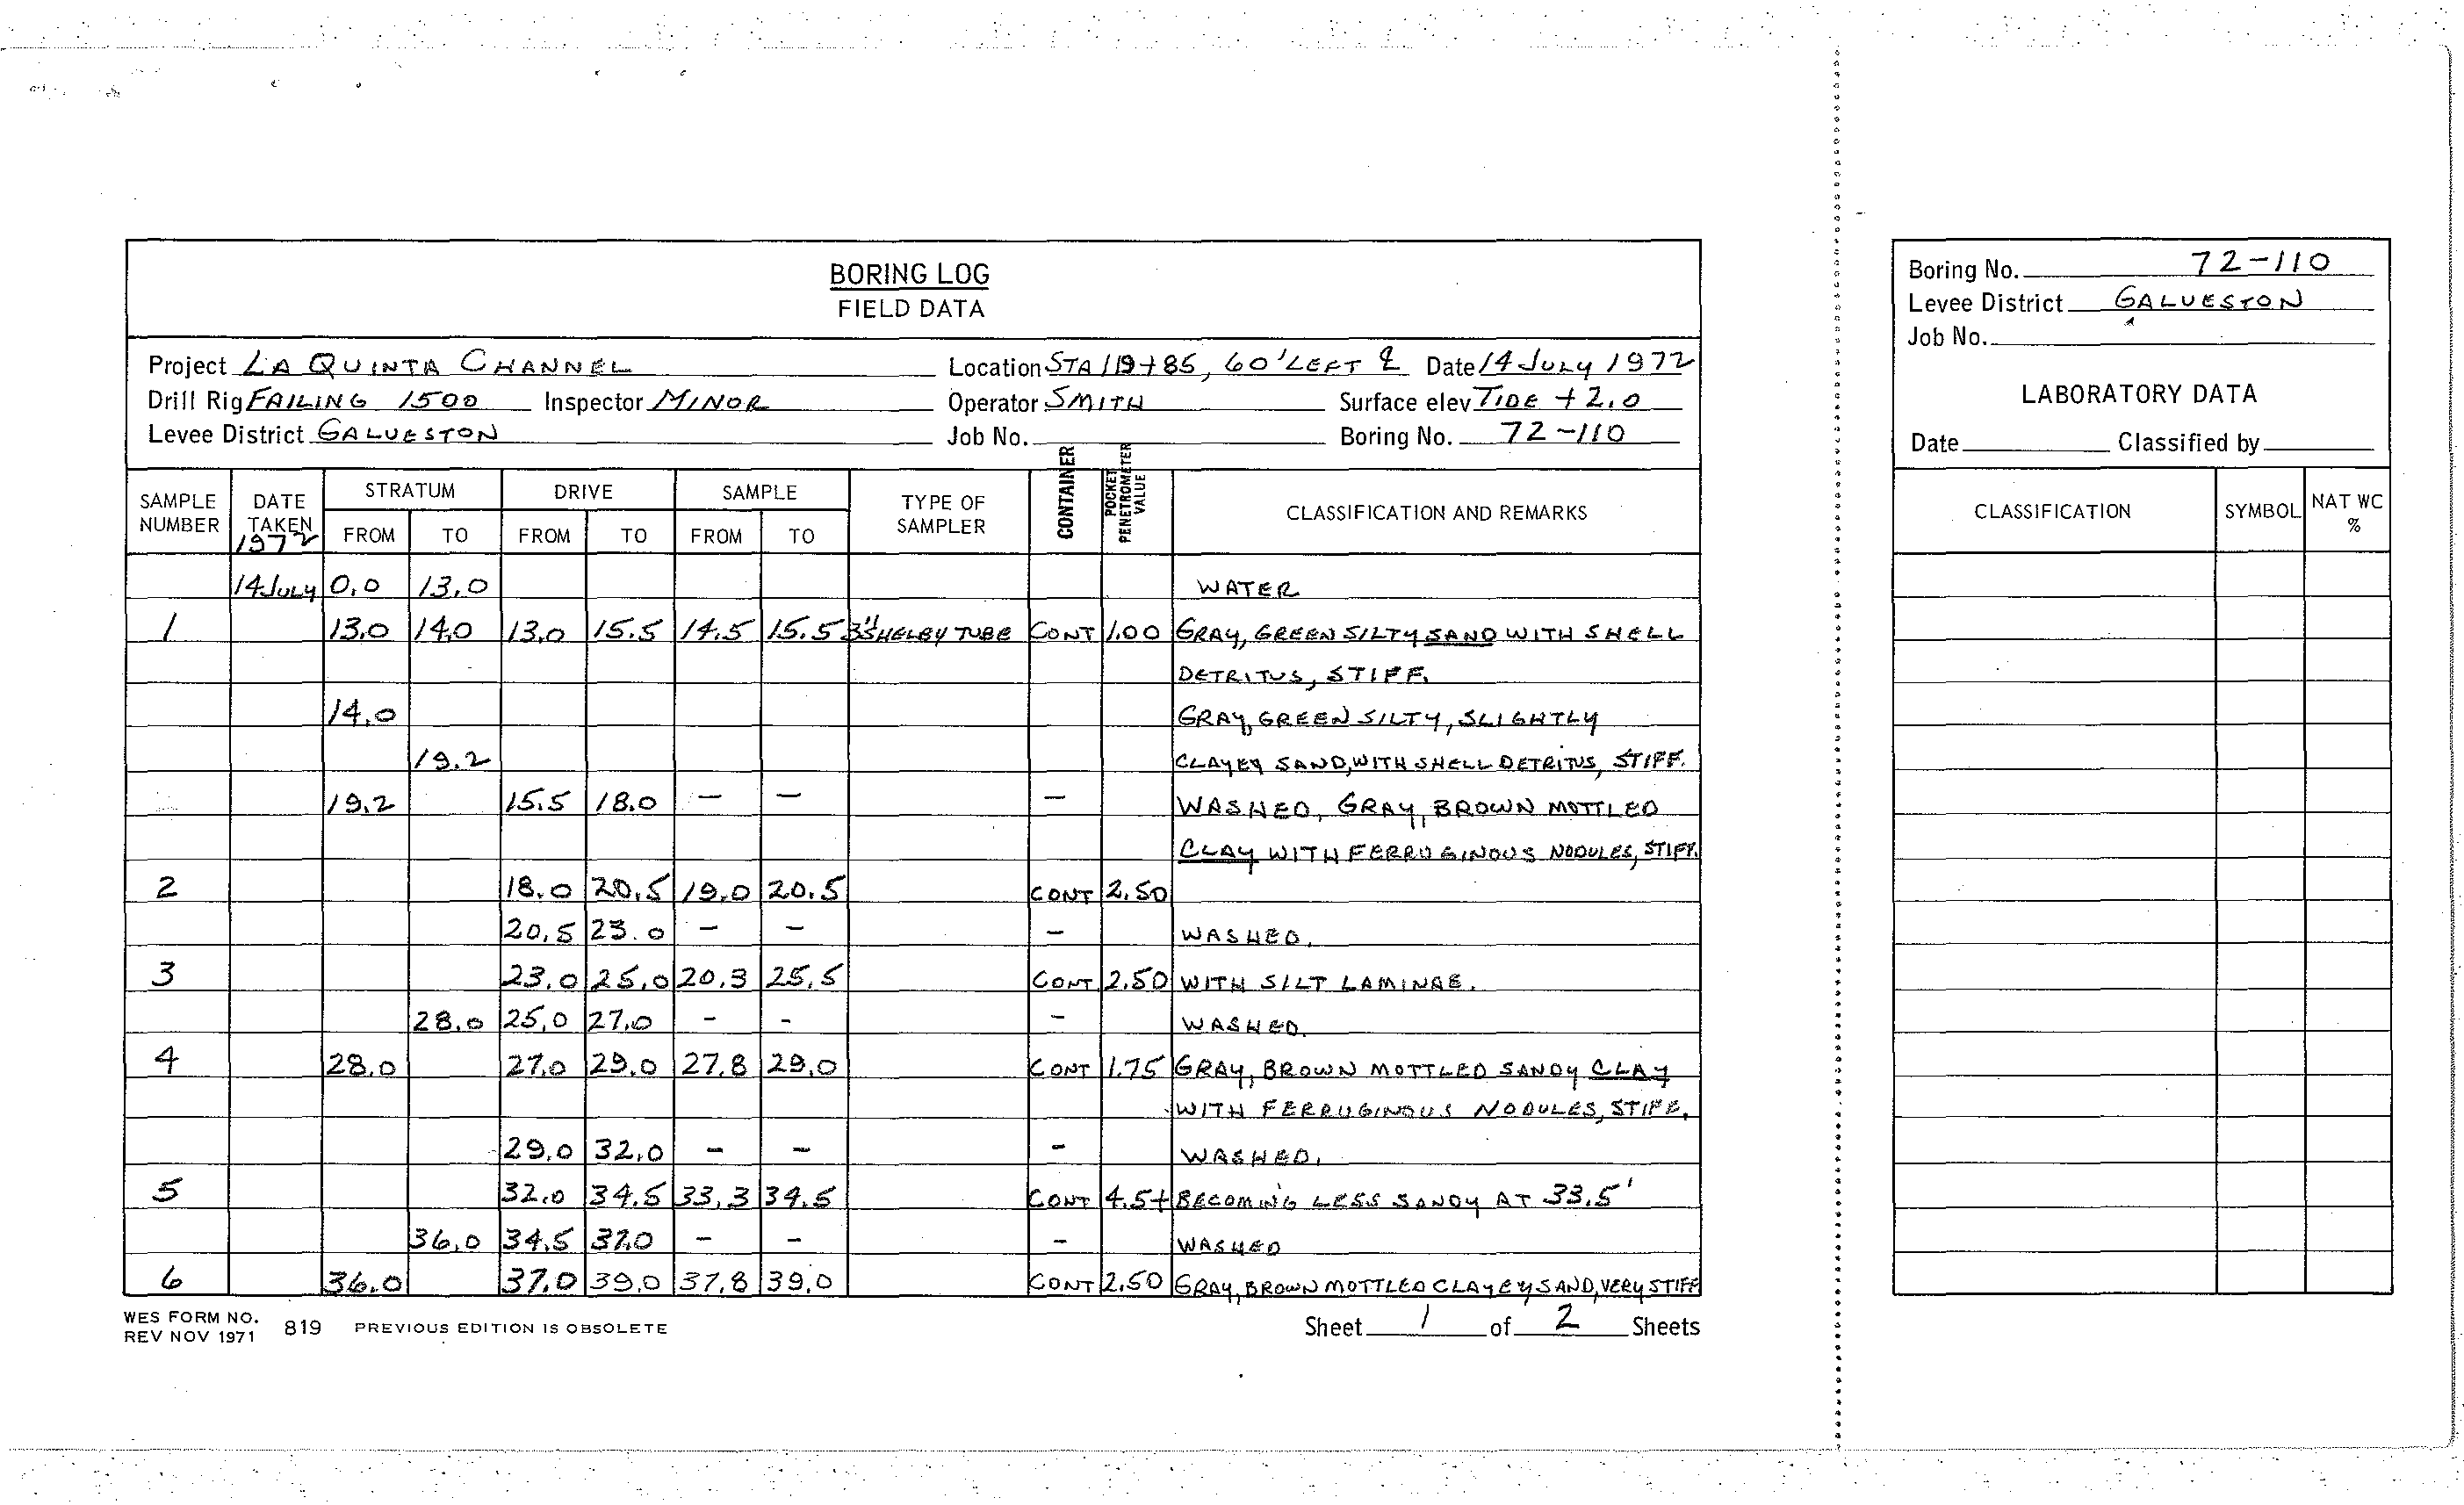 BORING LOG
FIELD DATA
Project LA QUINTA CHANNEL Location STA 119+85, 60' LEFT ℄ Date 14 JULY 1972
Drill Rig FAILING 1500 Inspector MINOR Operator SMITH Surface elev TIDE +2.0
Levee District GALVESTON Job No. Boring No. 72-110
SAMPLE NUMBER DATE TAKEN 1972 STRATUM FROM TO DRIVE FROM TO SAMPLE FROM TO TYPE OF SAMPLER CONTAINER POCKET PENETROMETER VALUE CLASSIFICATION AND REMARKS
14 JULY 0.0 13.0 WATER
1 13.0 14.0 13.0 15.5 14.5 15.5 3" SHELBY TUBE CONT 1.00 GRAY, GREEN SILTY SAND WITH SHELL
DETRITUS, STIFF.
14.0 GRAY, GREEN SILTY, SLIGHTLY
19.2 CLAYEY SAND, WITH SHELL DETRITUS, STIFF.
19.2 15.5 18.0 – – – WASHED, GRAY, BROWN MOTTLED
CLAY WITH FERRUGINOUS NODULES, STIFF.
2 18.0 20.5 19.0 20.5 CONT 2.50
20.5 23.0 – – – WASHED.
3 23.0 25.0 20.3 25.5 CONT 2.50 WITH SILT LAMINAE.
28.0 25.0 27.0 – – – WASHED.
4 28.0 27.0 29.0 27.8 29.0 CONT 1.75 GRAY, BROWN MOTTLED SANDY CLAY
WITH FERRUGINOUS NODULES, STIFF.
29.0 32.0 – – – WASHED.
5 32.0 34.5 33.3 34.5 CONT 4.5+ BECOMING LESS SANDY AT 33.5'
36.0 34.5 37.0 – – – WASHED
6 36.0 37.0 39.0 37.8 39.0 CONT 2.50 GRAY, BROWN MOTTLED CLAYEY SAND, VERY STIFF
WES FORM NO. 819 PREVIOUS EDITION IS OBSOLETE
REV NOV 1971
Sheet 1 of 2 Sheets
Boring No. 72-110
Levee District GALVESTON
Job No.
LABORATORY DATA
Date Classified by
CLASSIFICATION SYMBOL NAT WC %